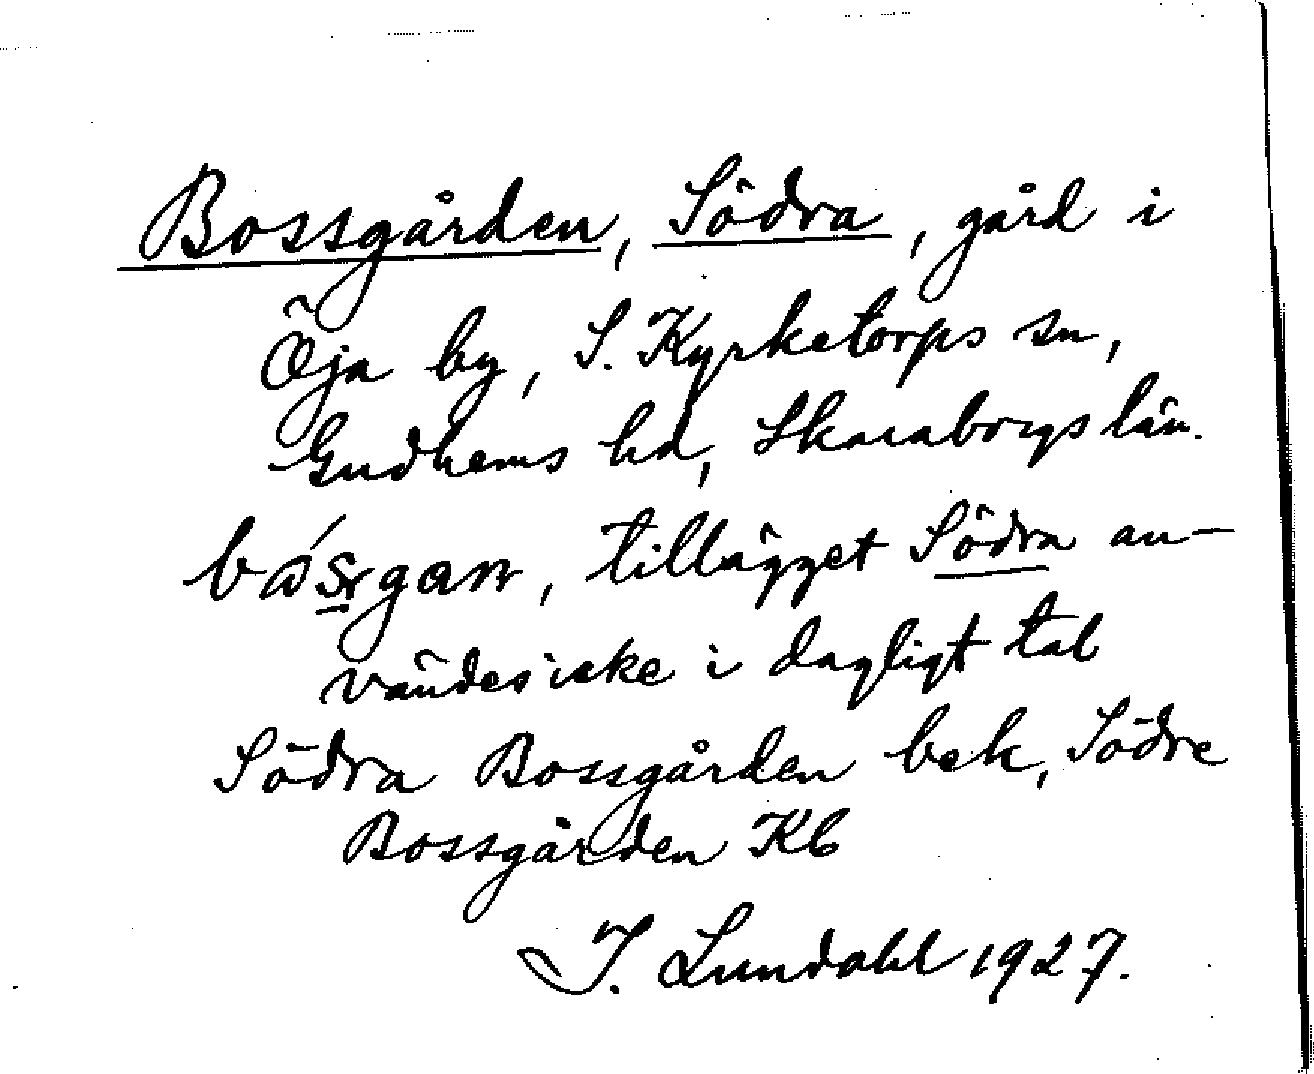 Bossgården, Södra, gård i
Öja by, S. Kyrketorps sn,
Gudhems hd, Skaraborgs län.
tillägget Södra an-
vändes icke i dagligt tal
Södra Bossgården bek, Södre
Bossgården Kb
I. Lundahl 1927.